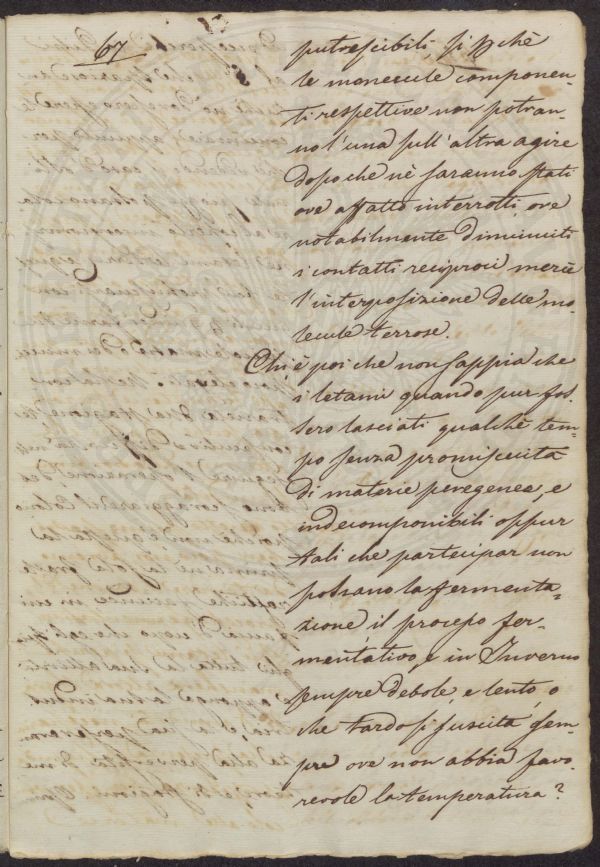 67
putrescibili, si pchè
le monecule componen-
ti respettive non potran-
no l'una sull'altra agire
dopo chè nè saranno stati
ove affatto interrotti, ove
notabilmente diminuiti
i contatti reciproci mercè
l'interposizione delle mo-
lecule terrose.
Chi è poi che non sappia che
i letami quando pur fos-
sero lasciati qualchè tem-
po senza promiscuità
di materie peregenee, e
indecomponibili oppur
tali che partecipar non
possano la fermenta-
zione il processo fer-
mentativo, è in Inverno
sempre debole, e lento, o
che tardo si suscita sem-
pre ove non abbia favo-
revole la temperatura?